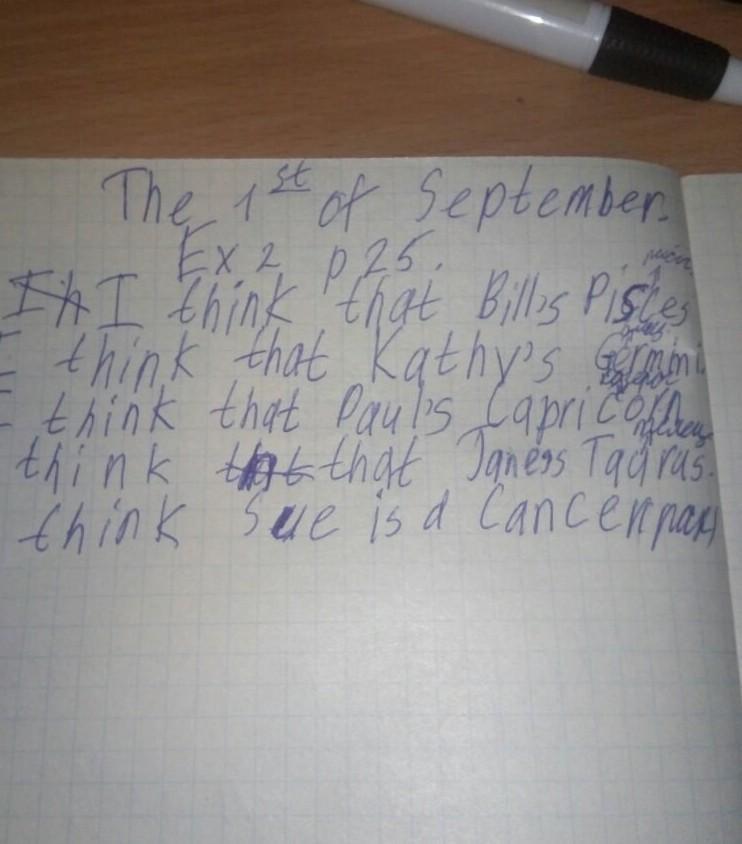 The 1st of September.
Ex 2 p 25.
I think that Bill's Pisces
I think that Kathy's Germini.
I think that Paul's Capricorn
think that Janess Taurus.
think Sue is a Cancer(рак)